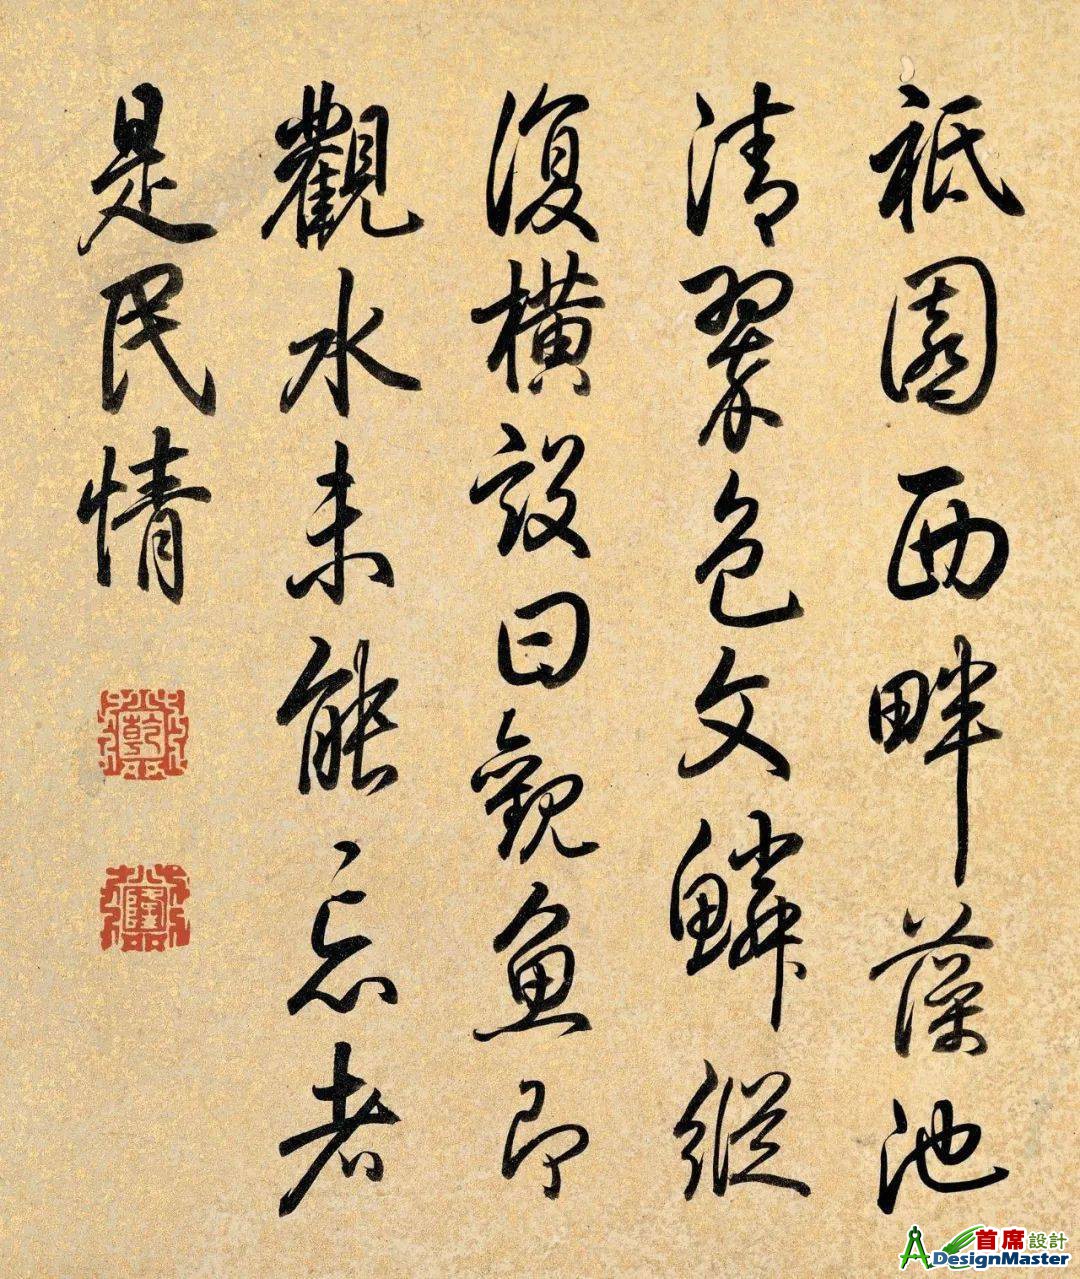 祗園西畔藻池
清翠色文鱗縱
復橫設曰觀魚即
觀水未能忘者
是民情
乾
隆
首席設計
ADesignMaster